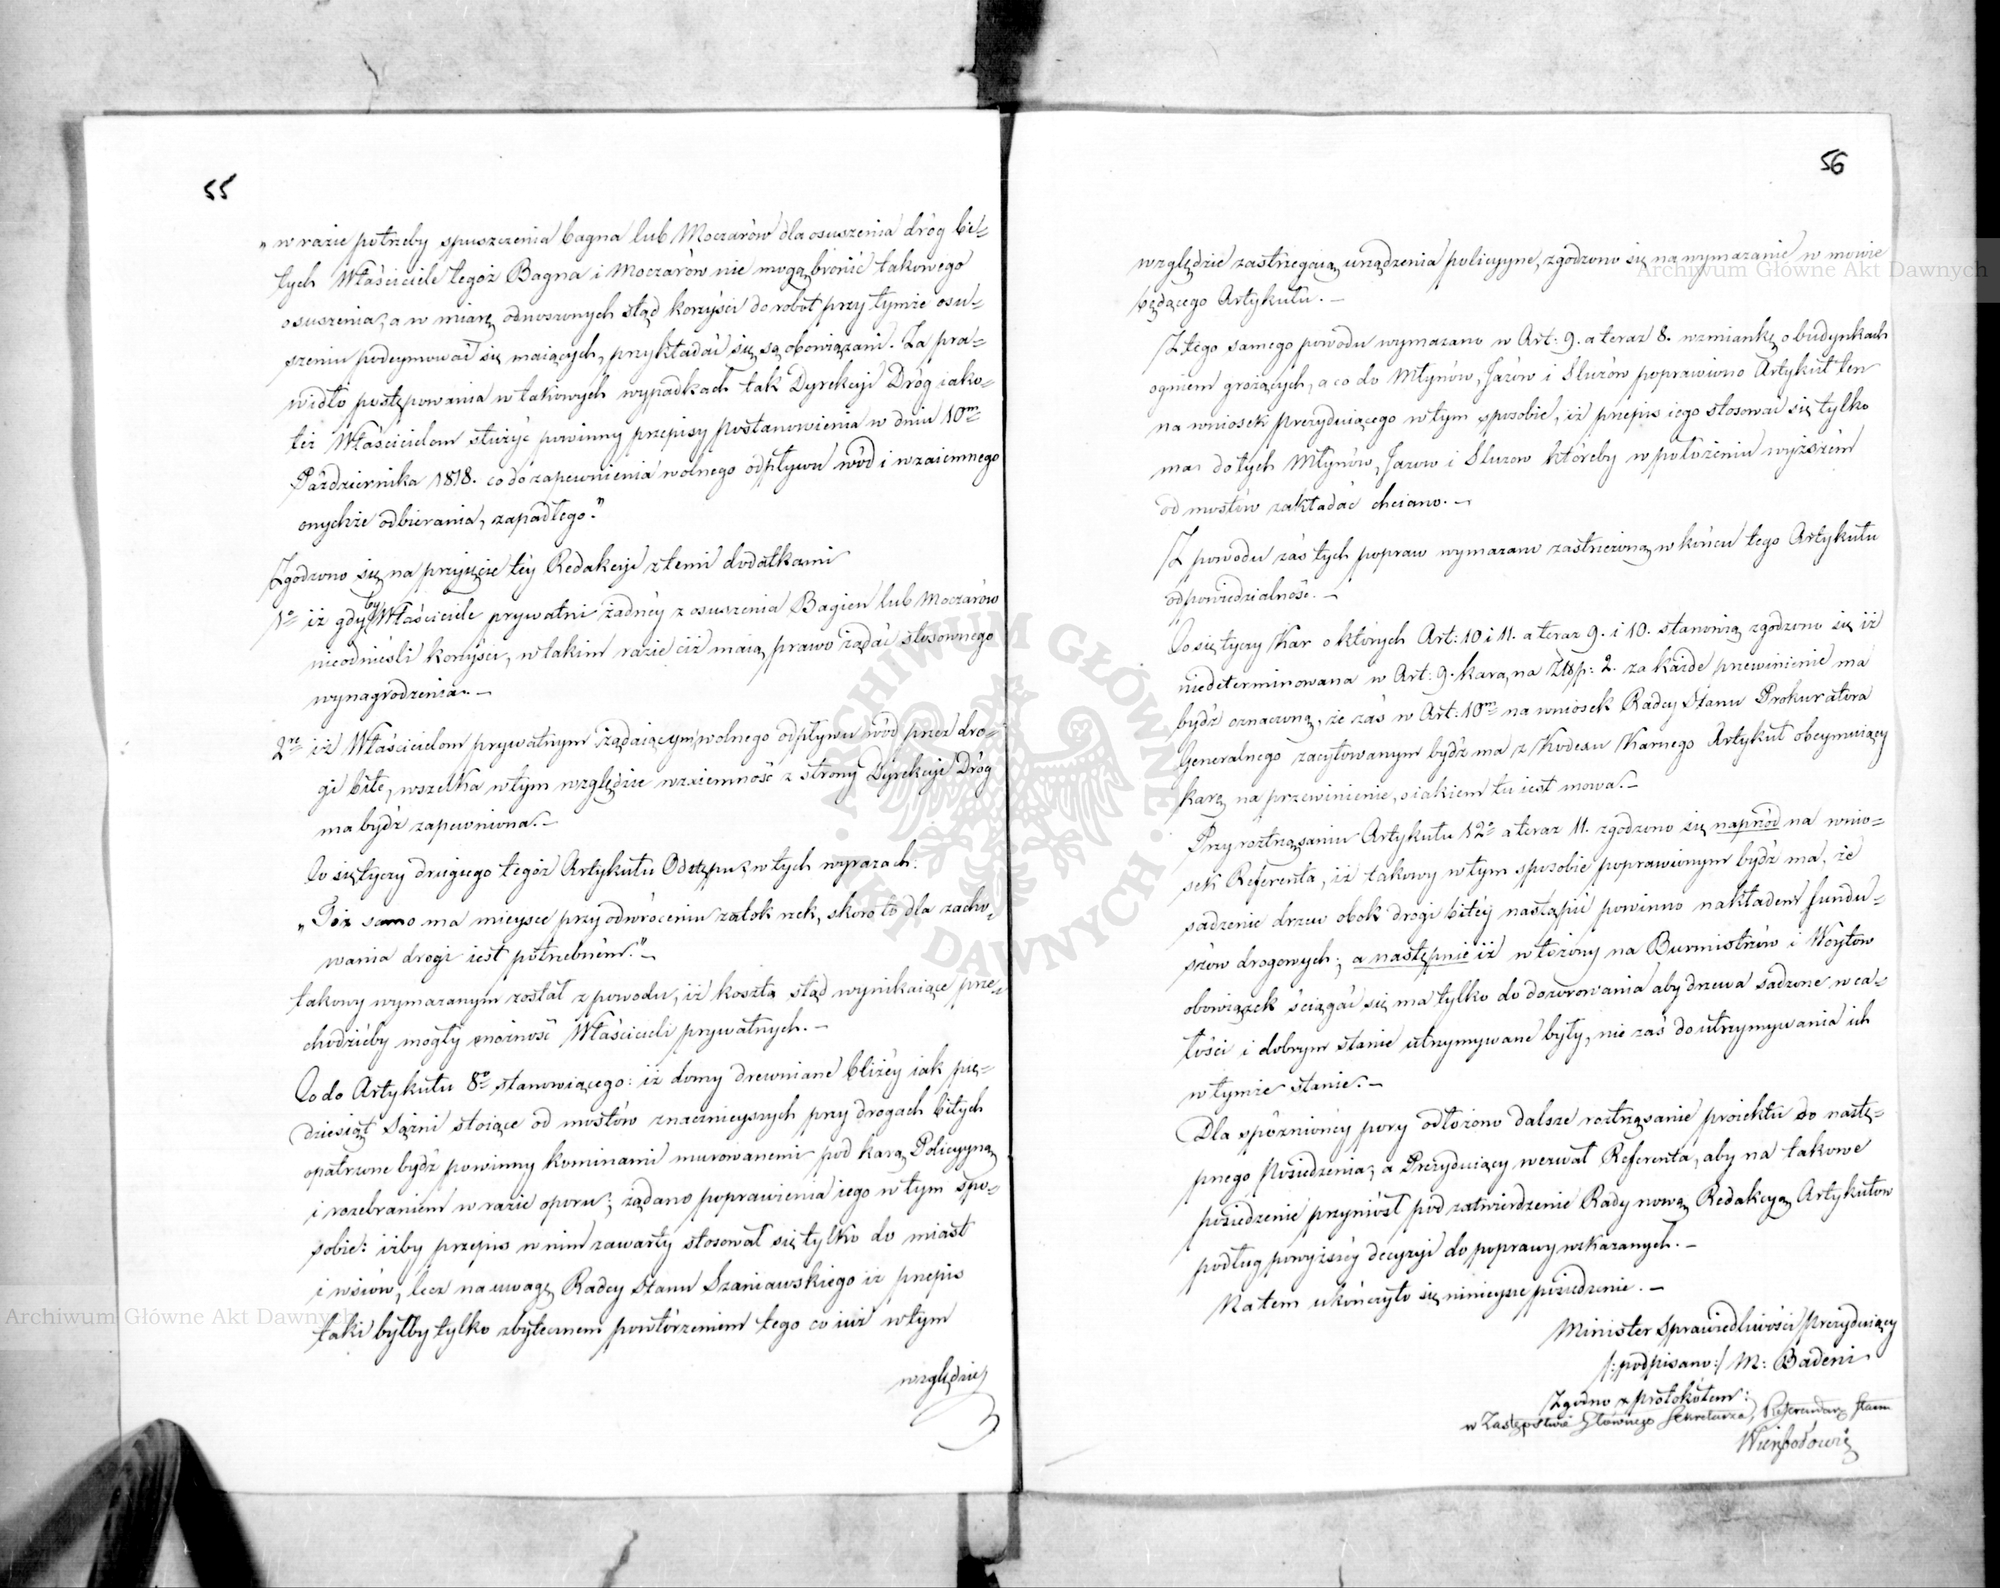 55
„w razie potrzeby spuszczenia bagna lub Moczarów dla osuszenia dróg bi-
tych Właściciele tegoż Bagna i Moczarów nie mogą bronić takowego
osuszenia, a w miarę odnoszonych stąd korzyści do robót przy tymże osu-
szeniu podeymować się maiących, przykładać się są obowiązani. Za pra-
widło postępowania w takowych wypadkach tak Dyrekcyi Dróg iako-
też Właścicielom służyć powinny przepisy postanowienia w dniu 10m
Października 1818. co do zapewnienia wolnego odpływu wód i wzaiemnego
onychże odbierania, zapadłego."
Zgodzono się na przyięcie téy Redakcyi z temi dodatkami
1o iż gdyby Właściciele prywatni żadnéy z osuszenia Bagien lub Moczarów
nieodnieśli korzyści, w takim razie ciż maią prawo żądać stosownego
wynagrodzenia. —
2re iż Właścicielom prywatnym żądaiącym wolnego odpływu wód przez dro-
gi bite, wszelka w tym względzie wzaiemność z strony Dyrekcyi Dróg
ma bydź zapewniona. —
Co się tyczy drugiego tegoż Artykułu Odstępu w tych wyrazach:
„Toż samo ma mieysce przy odwróceniu zatok rzek, skoro to dla zacho-
wania drogi iest potrzebném." —
takowy wymazanym został z powodu, iż koszta stąd wynikaiące prze-
chodzićby mogły możność Właścicieli prywatnych. —
Co do Artykułu 8o stanowiącego: iż domy drewniane bliżéy iak pię-
dziesiąt sążni stoiące od mostów znacznieyszych przy drogach bitych
opatrzone bydź powinny kominami murowanemi pod karą Policyyną
i rozebraniem w razie oporu; żądano poprawienia iego w tym spo-
sobie: iżby przepis w nim zawarty stosował się tylko do miast
i wsiów, lecz na uwagę Radcy Stanu Szaniawskiego iż przepis
taki byłby tylko zbytecznem powtórzeniem tego co iuż w tym
względzie
56
względzie zastrzegaią urządzenia policyyne, zgodzono się na wymazanie w mowie
będącego Artykułu. —
Z tego samego powodu wymazano w Art: 9. a teraz 8. wzmiankę o budynkach
ogniem grożących, a co do Młynów, Jazów i Sluzów poprawiono Artykuł ten
na wniosek Prezyduiącego w tym sposobie, iż przepis iego stosować się tylko
ma do tych Młynów, Jazów i Sluzow któreby w położeniu wyższém
od mostów zakładać chciano. —
Z powodu zaś tych popraw wymazano zastrzeżoną w końcu tego Artykułu
odpowiedzialność. —
Co się tyczy Kar o których Art: 10 i 11. a teraz 9. i 10. stanowią zgodzono się iż
niedeterminowana w Art: 9. kara, na Złtp: 2. za każde przewinienie ma
bydź oznaczoną, że zaś w Art: 10m na wniosek Radcy Stanu Prokuratora
Generalnego zacytowanym bydź ma z Kodexu Karnego Artykuł obeymuiący
karę na przewinienie, o iakiem tu iest mowa. —
Przy roztrząsaniu Artykułu 12o a teraz 11. zgodzono się naprzód na wnio-
sek Referenta, iż takowy w tym sposobie poprawionym bydź ma, że
sadzenie drzew obok drogi bitéy nastąpić powinno nakładem fundu-
szów drogowych; a następnie iż włożony na Burmistrzów i Woytow
obowiązek ściągać się ma tylko do dozorowania aby drzewa sadzone w ca-
łości i dobrym stanie utrzymywane były, nie zaś do utrzymywania ich
w tymże stanie. —
Dla spóźnionéy pory odłożono dalsze roztrząsanie proiektu do nastę-
pnego Posiedzenia, a Prezyduiący wezwał Referenta, aby na takowe
posiedzenie przyniósł pod zatwierdzenie Rady nową Redakcyą Artykułow
podług powyższéy decyzyi do poprawy wskazanych. —
Na tem ukończyło się ninieysze posiedzenie. —
Minister Sprawiedliwości Prezyduiący
/:podpisano:/ M: Badeni
Zgodno z protokółem:
w Zastępstwie Głównego Sekretarza, Referendarz Stanu
Archiwum Główne Akt Dawnych
Archiwum Główne Akt Dawnych
ARCHIWUM GŁÓWNE AKT DAWNYCH